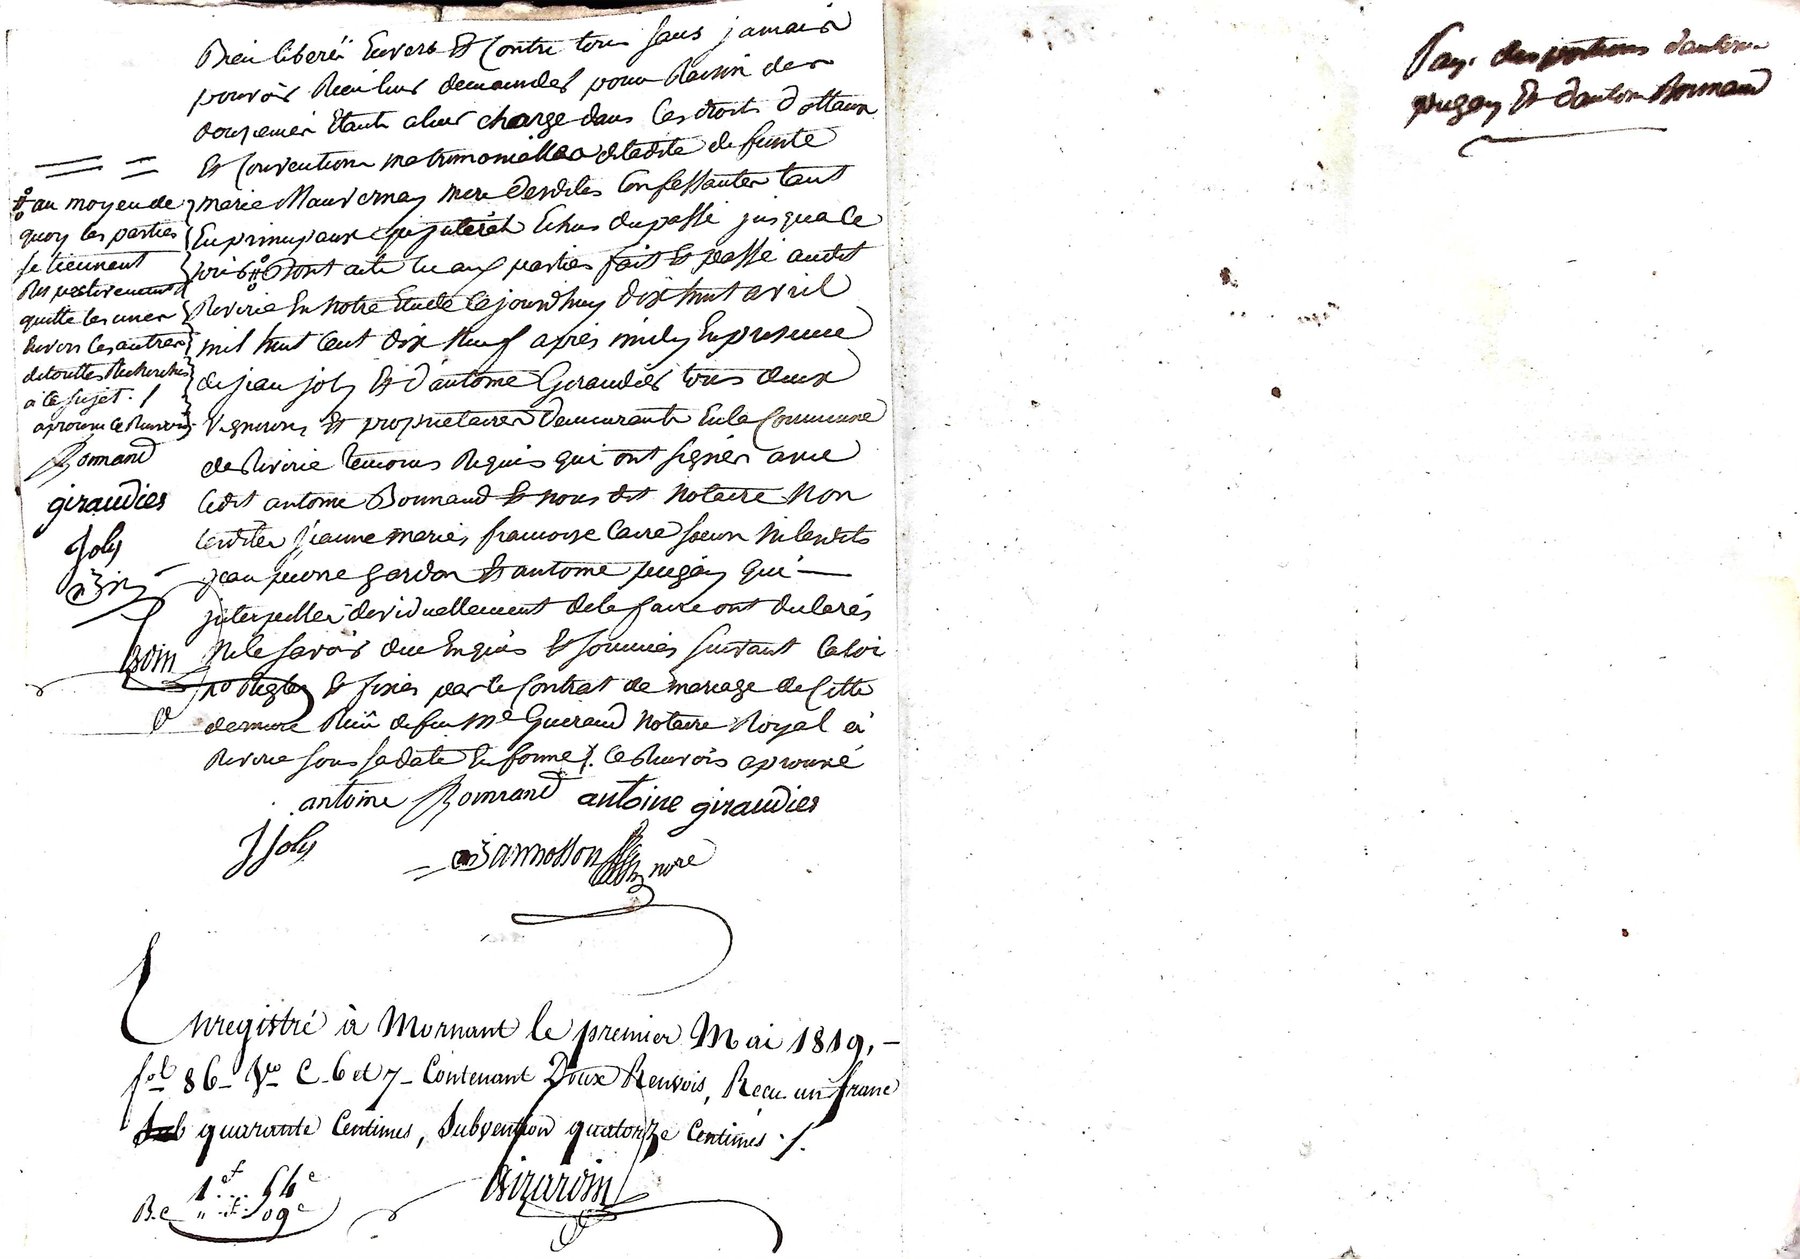 Bien liberé Envers Et Contre tous sans jamais
pouvoir Rien leur demander pour Raison des
Etants a leur charge dans les droits
Et Conventions matrimonialles de ladite defunte
marie Mauvernay mere desdites Confessantes tant
En principaux qu'jnterét Echus du passé jusqua Ce
jour Dont acte lu aux parties fait Et passé audit
Riverie En notre Etude Cejourdhuy dix huit avril
mil huit Cent dix Neuf après midy En presence
de jean joly Et d'antoine Giraudier tous deux
Vignerons Et propriétaires demeurants En la Commune
de Riverie temoins Requis qui ont signés avec
ledit antoine Bonnand Et nous dit Notaire Non
lesdites jeanne marie, francoise Claire soeurs Ni lesdits
jean pierre gardon Et antoine pugny qui —
jnterpellés Individuellement de le faire ont declarés
Ne le savoir due Enquis Et sommés suivant la loi
Reglés Et fixés par le Contrat de mariage de Cette
derniere Reçu de feu Me Gueraud Notaire Royal à
Riverie sous sa date En forme ./. Ce Renvois aprouvé
antoine Bonnand antoine giraudier
J Joly
Jannosson nore
au moyen de
quoy les parties
se tiennent
Respectivement
quitte les unes
Envers les autres
de touttes Recherches
a Ce sujet. /
aprouvé Ce Renvois
Bonnand
giraudier
Joly
Enregistré à Mornant le premier Mai 1819, —
fol 86 - Vo C. 6 et 7 - Contenant Deux Renvois, Reçu un franc
quarante Centimes, Subvention quatorze Centimes ./.
1f.... 54c
B.c " .f. 09c
Girardin
Pay. des portions d'antoine
pugny Et d'antoine Bonnand